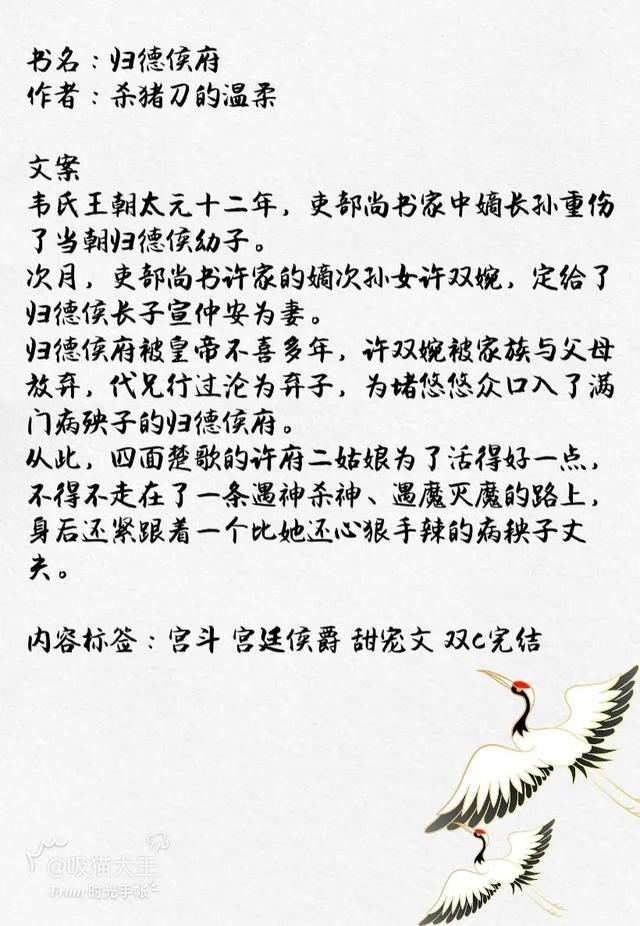 书名：归德侯府
作者：杀猪刀的温柔
文案
韦氏王朝太元十二年，吏部尚书家中嫡长孙重伤
了当朝归德侯幼子。
次月，吏部尚书许家的嫡次孙女许双婉，定给了
归德侯长子宣仲安为妻。
归德侯府被皇帝不喜多年，许双婉被家族与父母
放弃，代兄行过沦为弃子，为堵悠悠众口入了满
门病殃子的归德侯府。
从此，四面楚歌的许府二姑娘为了活得好一点，
不得不走在了一条遇神杀神、遇魔灭魔的路上，
身后还紧跟着一个比她还心狠手辣的病秧子丈
夫。
内容标签：宫斗 宫廷侯爵 甜宠文 双C完结
@吸猫大王
From 时光手帐